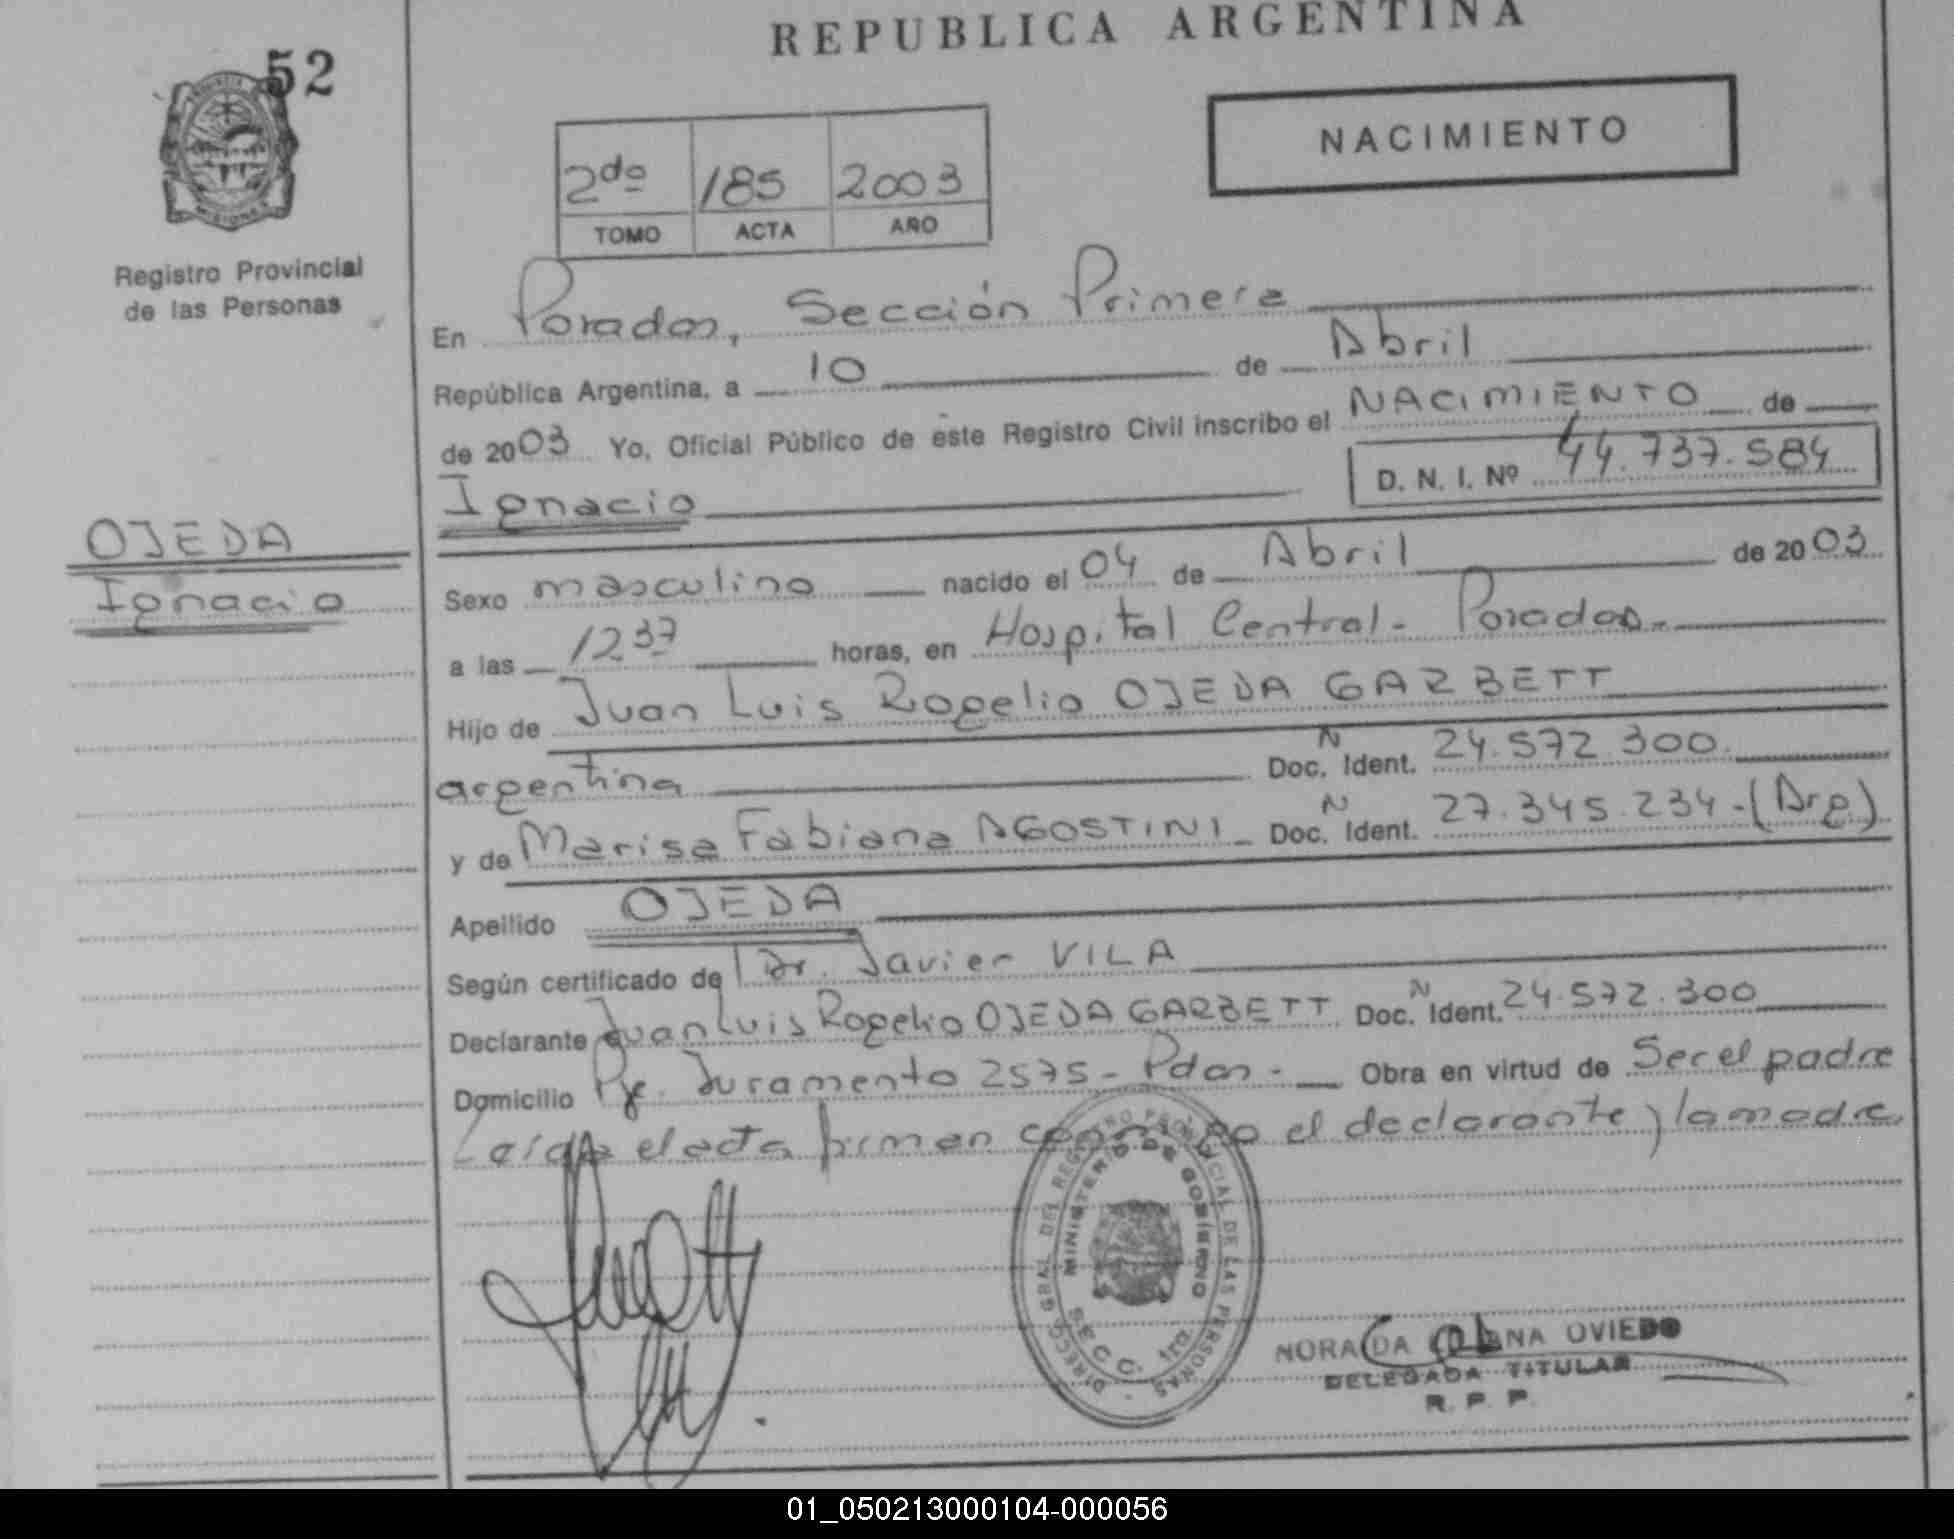 REPUBLICA ARGENTINA
52
PROVINCIA
MISIONES
Registro Provincial
de las Personas
NACIMIENTO
2do 185 2003
TOMO ACTA AÑO
En Posadas, Sección Primera
República Argentina, a 10 de Abril
de 2003 Yo, Oficial Público de este Registro Civil inscribo el NACIMIENTO de
Ignacio D. N. I. Nº 44.737.584
OJEDA
Ignacio
Sexo masculino nacido el 04 de Abril de 2003
a las 12 37 horas, en Hospital Central - Posadas.-
Hijo de Juan Luis Rogelio OJEDA GARBETT
argentina Doc. N Ident. 24.572.300.
y de Marisa Fabiana AGOSTINI Doc. N Ident. 27.345.234-(Arg)
Apellido OJEDA
Según certificado de Dr. Javier VILA
Declarante Juan Luis Rogelio OJEDA GARBETT Doc. N Ident. 24.572.300
Domicilio Pje. Juramento 2575 - Pdas. Obra en virtud de Ser el padre
Leída el acta firman el declarante y la madre.
DIRECC. GRAL. DEL REGISTRO PROVINCIAL DE LAS PERSONAS
MINISTERIO DE GOBIERNO
SECC. 1ra.
NORA OVIEDO
DELEGADA TITULAR
R. P. P.
01_050213000104-000056